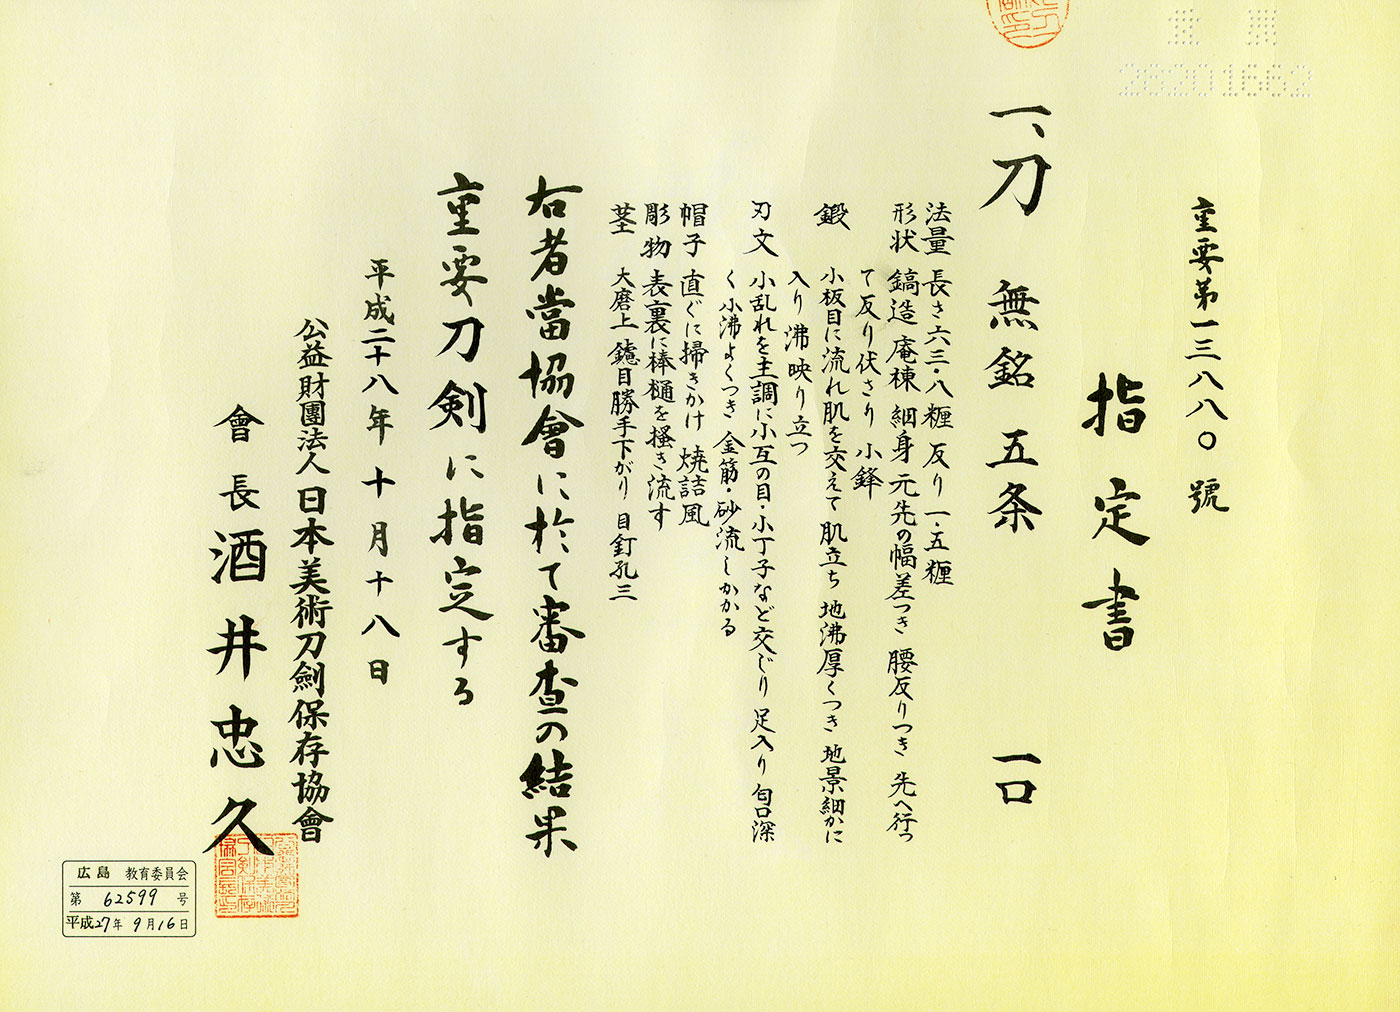 重要
28201662
重要第一三八八〇號
指定書
一、刀 無銘 五条 一口
法量 長さ六三・八糎 反り一・五糎
形状 鎬造 庵棟 細身 元先の幅差つき 腰反りつき 先へ行っ
て反り伏さり 小鋒
鍛 小板目に流れ肌を交えて 肌立ち 地沸厚くつき 地景細かに
入り 沸映り立つ
刃文 小乱れを主調に小互の目・小丁子など交じり 足入り 匂口深
く 小沸よくつき 金筋・砂流しかかる
帽子 直ぐに掃きかけ 焼詰風
彫物 表裏に棒樋を掻き流す
茎 大磨上 鑢目勝手下がり 目釘孔三
右者當協會に於て審査の結果
重要刀剣に指定する
平成二十八年十月十八日
公益財團法人日本美術刀劍保存協會
會長 酒井忠久
広島 教育委員会
第 62599 号
平成27年 9月16日